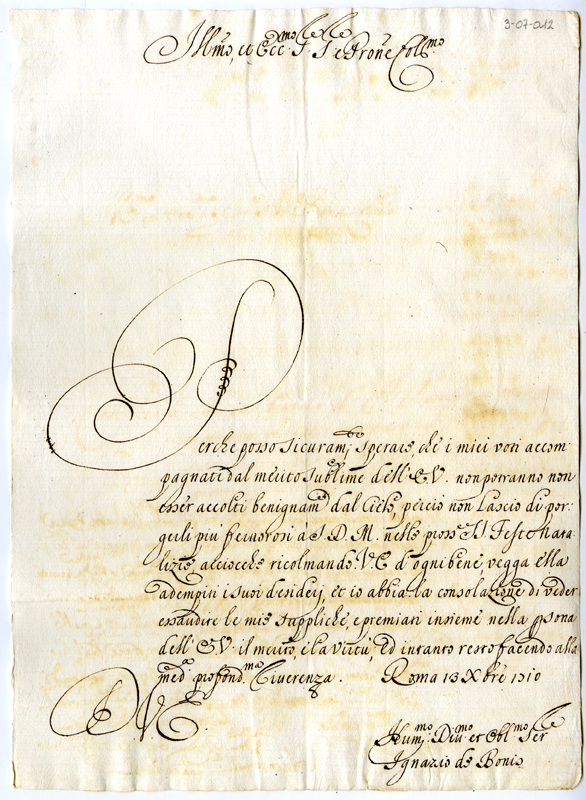 3-07-012
Ill.mo, et Ecc.mo S. S. e Prone Coll.mo
Perche posso sicuram.te sperare, che i miei voti accom-
pagnati dal merito sublime dell'E.V. non potranno non
esser accolti benignam.te dal Cielo, perciò non lascio di por-
gerli più fervorosi à S. D. M. nelle pross.e SS. Feste Nata-
lizie, acciocche ricolmando V.E. d'ogni bene, vegga ella
adempiti i suoi desiderij, et io abbia la consolazione di veder
essaudite le mie suppliche, e premiati insieme nella psona
dell'E.V. il merito, e la virtù, ed intanto resto facendo alla
med.a profond.ma riverenza. Roma 13 Xbre 1710
V.E.
Hum.mo Div.mo et Obl.mo Ser.re
Ignazio de Bonis